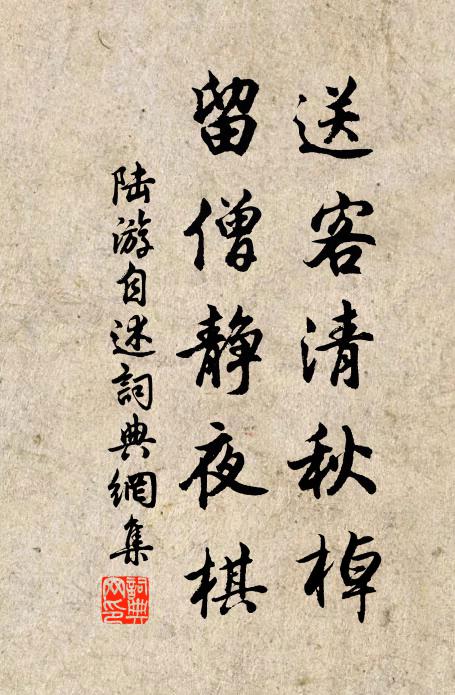 送客清秋棹
留僧静夜棋
陆游自述詞典網集
詞典
网印